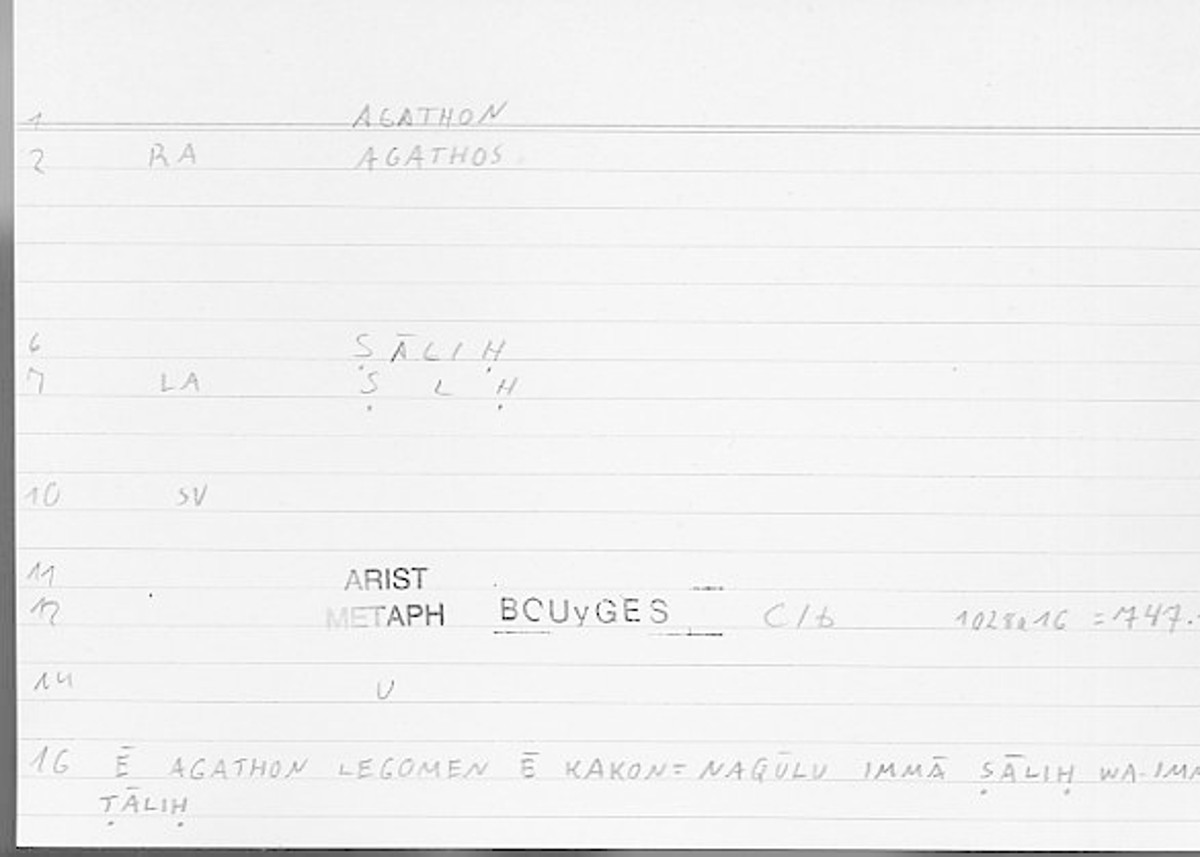 1 AGATHON
2 RA AGATHOS
6 ṢĀLIḤ
7 LA Ṣ L Ḥ
10 SV
11 ARIST
12 METAPH BOUyGES C/b 1028a16 = 747.
14 U
16 Ē AGATHON LEGOMEN Ē KAKON = NAQŪLU IMMĀ ṢĀLIḤ WA-IMM
ṬĀLIḤ